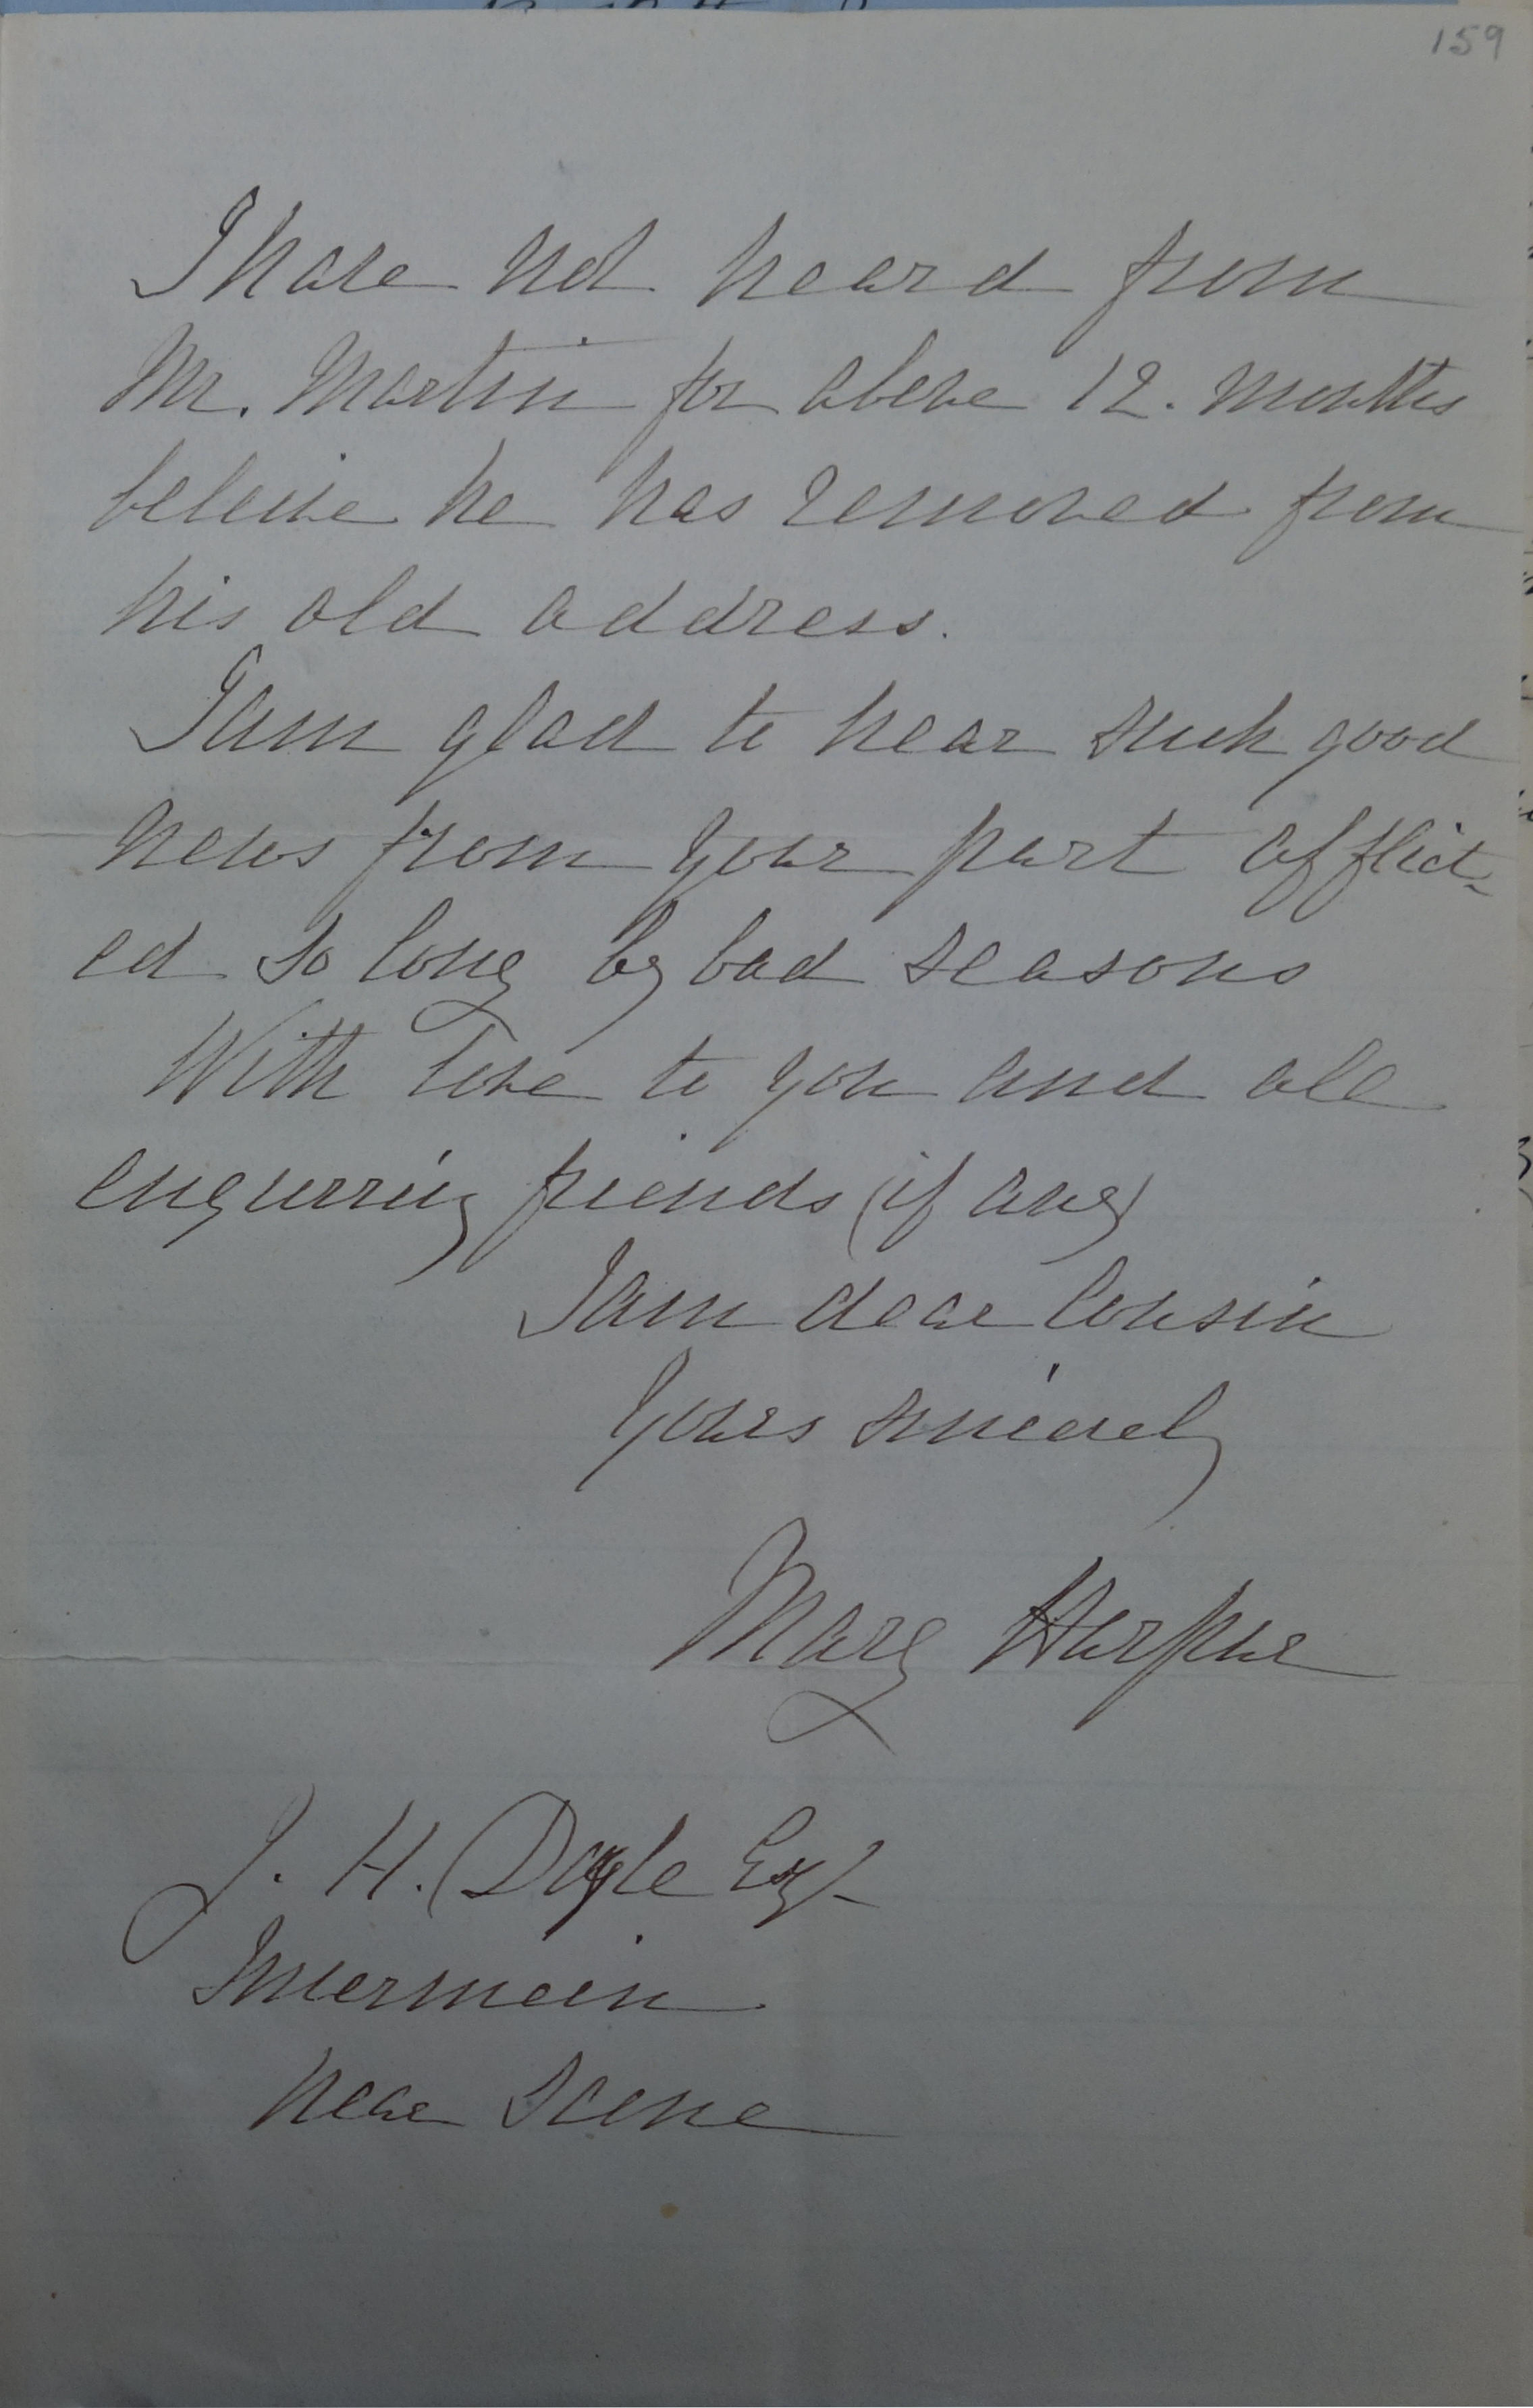 159
I have not heard from
Mr. Martin for above 12. months
beleive he has removed from
his old address.
I am glad to hear such good
news from your part afflict-
ed so long by bad seasons
With love to you and all
enquiring friends (if any)
I am dear Cousin
Yours sincerely
Mary Harpur
J. H. Doyle Esq.
Invermein
near Scone